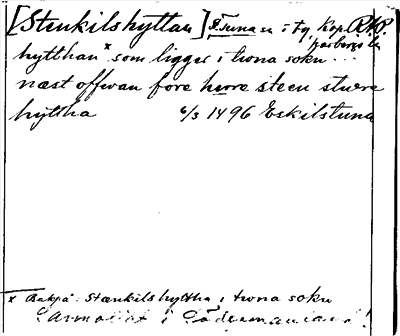 [Stenkilshyttan] Tuna sn i ty. Kop. RAP.
hytthan x som ligger i twna sokn ...
næst offwan fore hwre steen stwre
hyttha 6/3 1496 Eskilstuna
x Bakpå: Stænkils hyttha i twna sokn
i Södermanland!